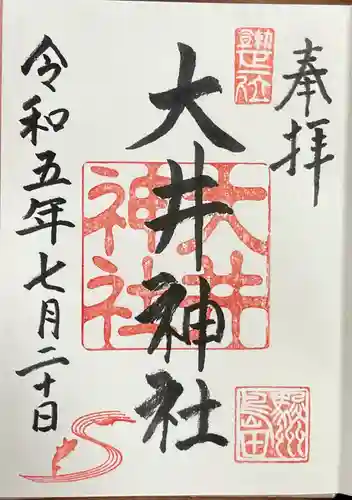 奉拝
大井神社
大井神社
令和五年七月二十日